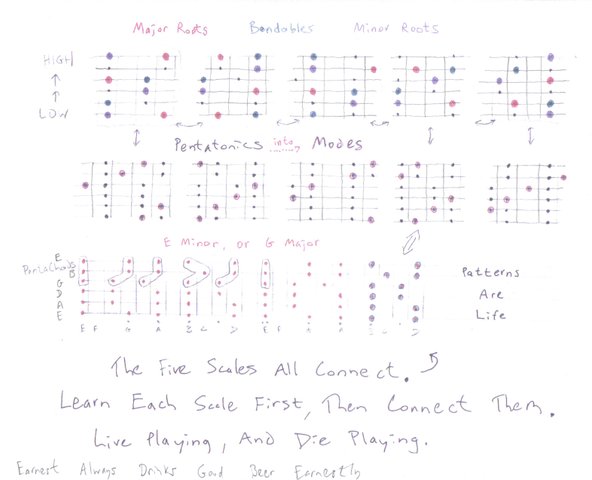 Major Roots Bendables Minor Roots
HIGH
LOW
Pentatonics into Modes
E Minor, or G Major
E
B
G
D
A
E
E F G A B C D E F
Patterns
Are
Life
The Five Scales All Connect.
Learn Each Scale First, Then Connect Them.
Live Playing, And Die Playing.
Earnest Always Drinks Good Beer Earnestly